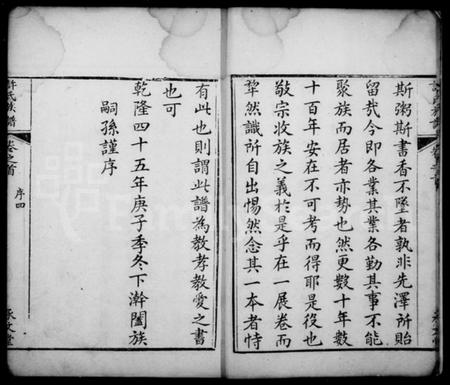 斯粥斯書香不墜者孰非先澤所貽
留哉今即各業其業各勤其事不能
聚族而居者亦勢也然更數十年數
十百年安在不可考而得耶是役也
敬宗收族之義於是乎在一展卷而
犂然識所自出惕然念其一本者恃
有此也則謂此譜為教孝教愛之書
也可
乾隆四十五年庚子季冬下澣闔族
嗣孫謹序
許氏族譜
卷之首
序四
承文堂